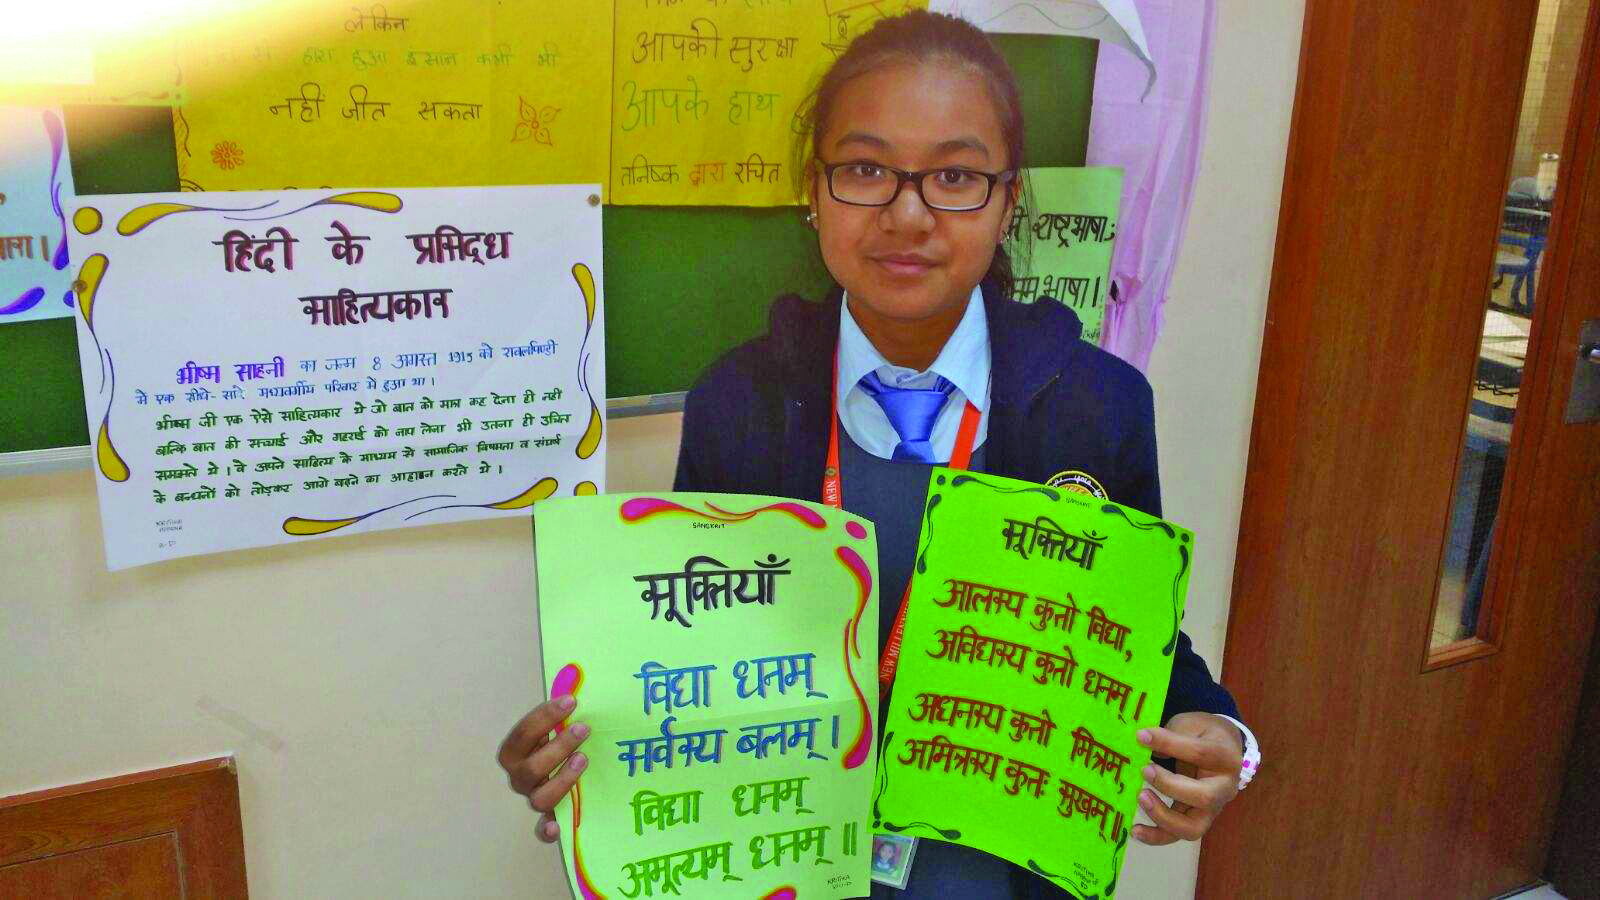 लेकिन
हारा हुआ इंसान कभी भी
नहीं जीत सकता
आपकी सुरक्षा
आपके हाथ
तनिष्क द्वारा रचित
राष्ट्रभाषा,
भाषा।
हिंदी के प्रसिद्ध
साहित्यकार
भीष्म साहनी का जन्म 8 अगस्त 1915 को रावलपिण्डी
में एक सीधे-सादे मध्यवर्गीय परिवार में हुआ था।
भीष्म जी एक ऐसे साहित्यकार थे जो बात को मात्र कह देना ही नहीं
बल्कि बात की सच्चाई और गहराई को नाप लेना भी उतना ही उचित
समझते थे। वे अपने साहित्य के माध्यम से सामाजिक विषमता व संघर्ष
के बन्धनों को तोड़कर आगे बढ़ने का आहाव्न करते थे।
KRITIKA
SANSKRIT
सूक्तियाँ
विद्या धनम्
सर्वस्य बलम्।
विद्या धनम्
अमूल्यम् धनम्॥
KRITIKA
SANSKRIT
सूक्तियाँ
आलस्य कुतो विद्या,
अविद्यस्य कुतो धनम्।
अधनस्य कुतो मित्रम्,
अमित्रस्य कुतः सुखम्॥
KRITIKA
NEW MILLENNIUM